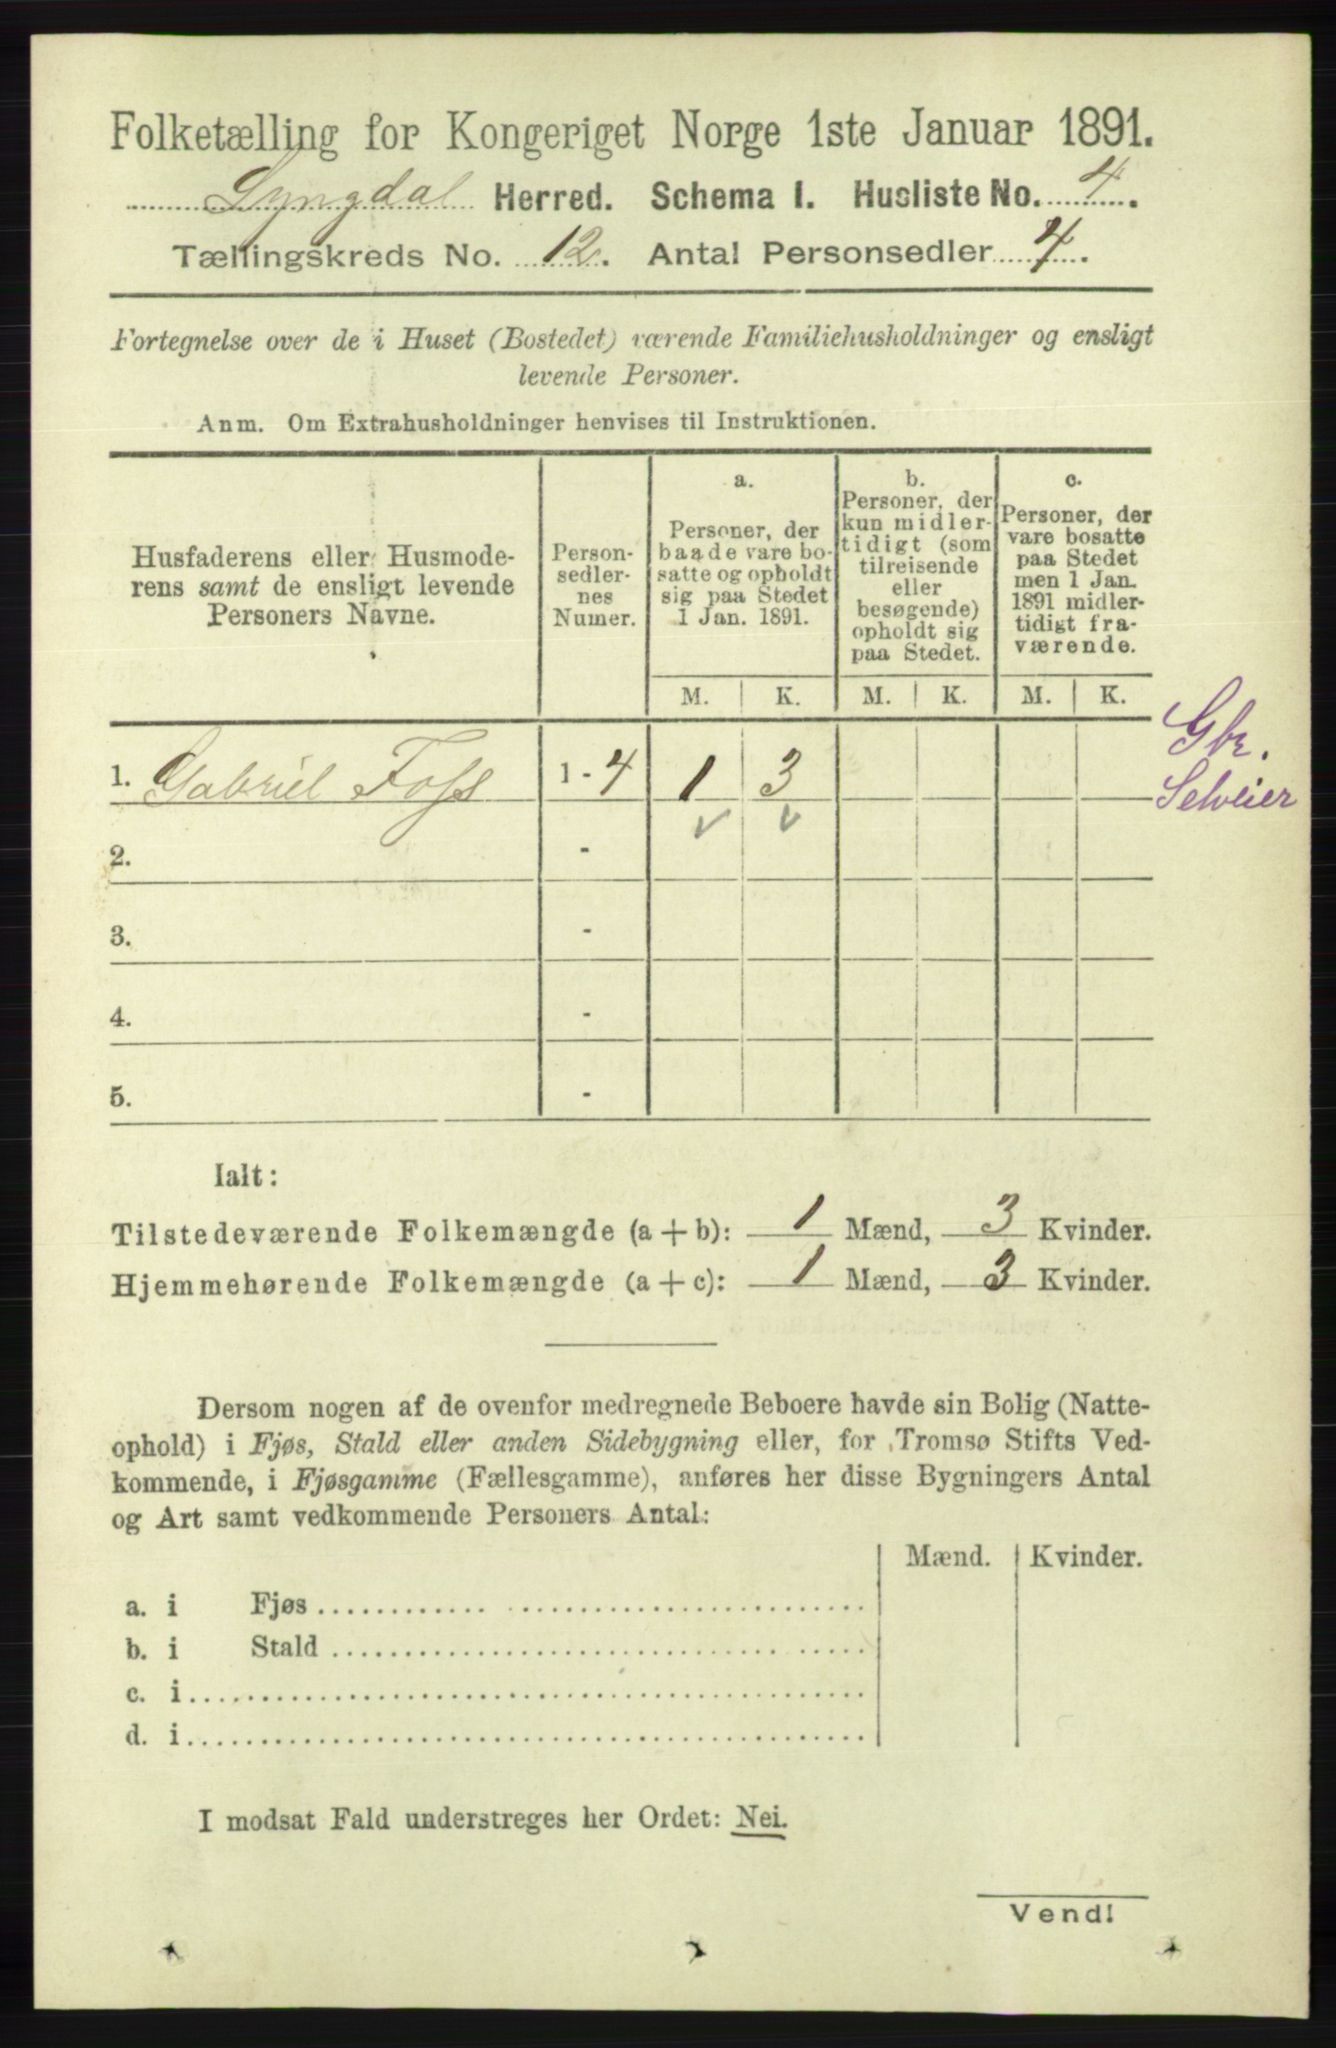 Folketælling for Kongeriget Norge 1ste Januar 1891.
Lyngdal Herred. Schema I. Husliste No. 4.
Tællingskreds No. 12. Antal Personsedler 4.
Fortegnelse over de i Huset (Bostedet) værende Familiehusholdninger og ensligt
levende Personer.
Anm. Om Extrahusholdninger henvises til Instruktionen.
Husfaderens eller Husmode-
rens samt de ensligt levende
Personers Navne.
Person-
sedler-
nes
Numer.
a.
Personer, der
baade vare bo-
satte og opholdt
sig paa Stedet
1 Jan. 1891.
b.
Personer, der
kun midler-
tidigt (som
tilreisende
eller
besøgende)
opholdt sig
paa Stedet.
c.
Personer, der
vare bosatte
paa Stedet
men 1 Jan.
1891 midler-
tidigt fra-
værende.
M. K. M. K. M. K.
1. Gabriel Foss 1 - 4 1 3
Gbr.
Selveier
2. -
3. -
4. -
5. -
Ialt:
Tilstedeværende Folkemængde (a + b): 1 Mænd, 3 Kvinder.
Hjemmehørende Folkemængde (a + c): 1 Mænd, 3 Kvinder.
Dersom nogen af de ovenfor medregnede Beboere havde sin Bolig (Natte-
ophold) i Fjøs, Stald eller anden Sidebygning eller, for Tromsø Stifts Ved-
kommende, i Fjøsgamme (Fællesgamme), anføres her disse Bygningers Antal
og Art samt vedkommende Personers Antal:
Mænd. Kvinder.
a. i Fjøs
b. i Stald
c. i
d. i
I modsat Fald understreges her Ordet: Nei.
Vend!